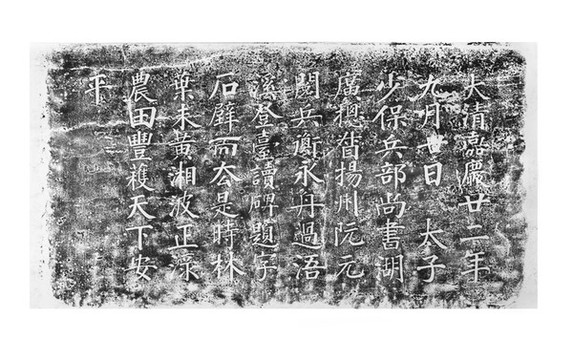 大清嘉慶廿二年
九月廿日　太子
少保兵部尚書湖
廣總督揚州阮元
閱兵衡永舟過浯
溪登臺讀碑題字
石壁而去是時林
葉未黃湘波正淥
農田豐穫天下安
平